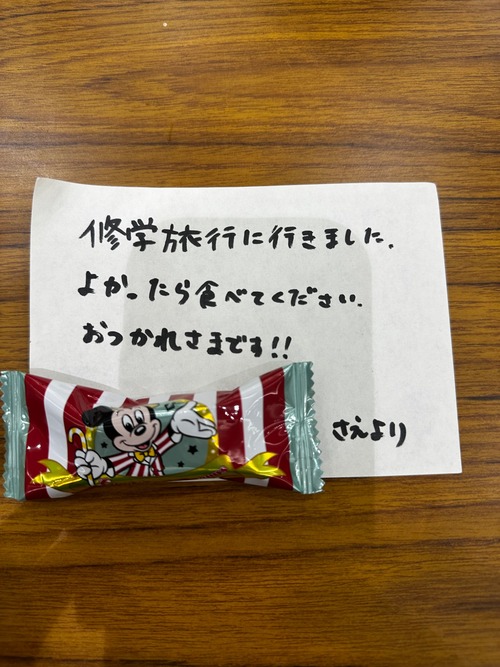 修学旅行に行きました.
よかったら食べてください.
おつかれさまです!!
さえより